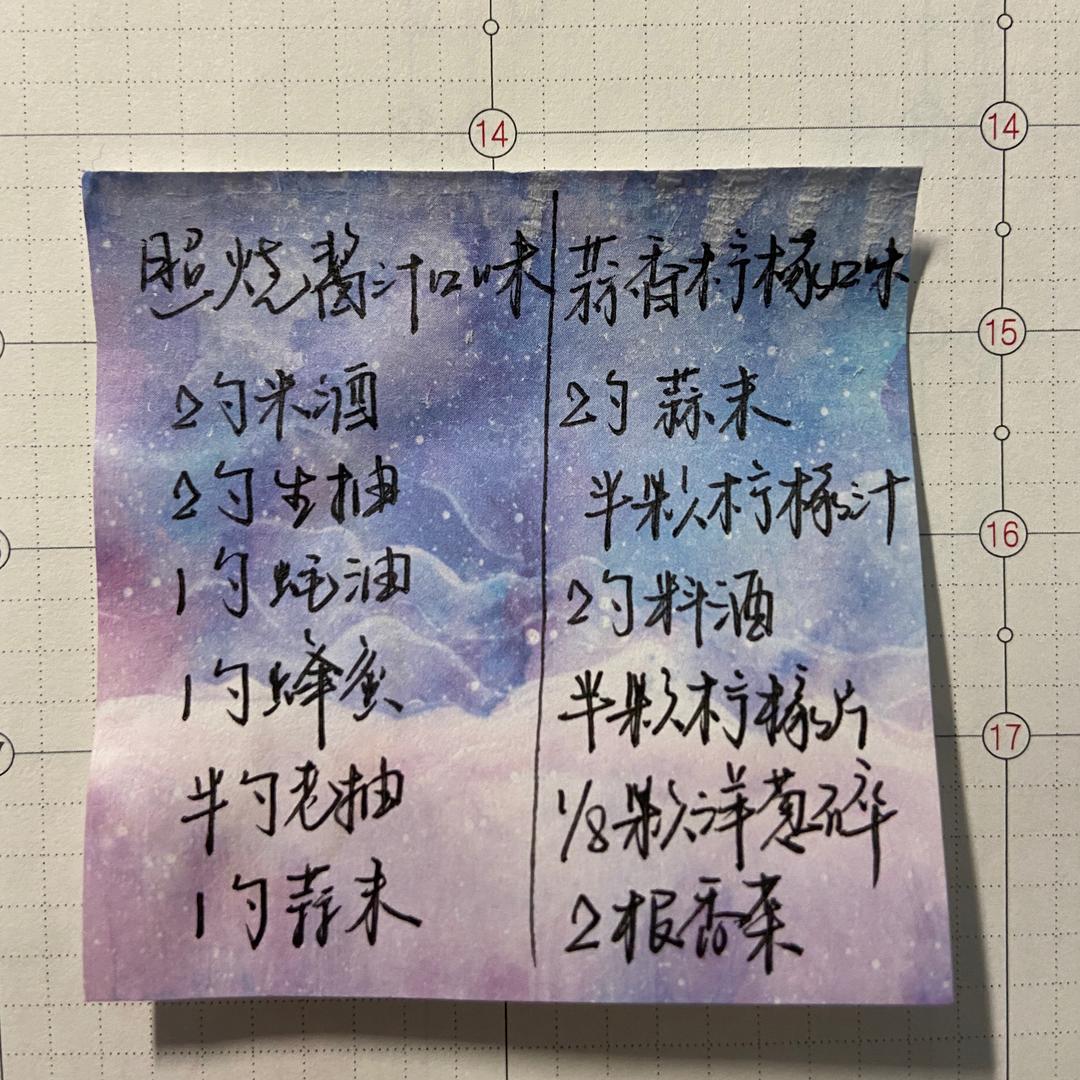 照烧酱汁口味
2勺米酒
2勺生抽
1勺蚝油
1勺蜂蜜
半勺老抽
1勺蒜末
蒜香柠檬口味
2勺蒜末
半颗柠檬汁
2勺料酒
半颗柠檬片
1/8颗洋葱碎
2根香菜
14
14
15
16
17